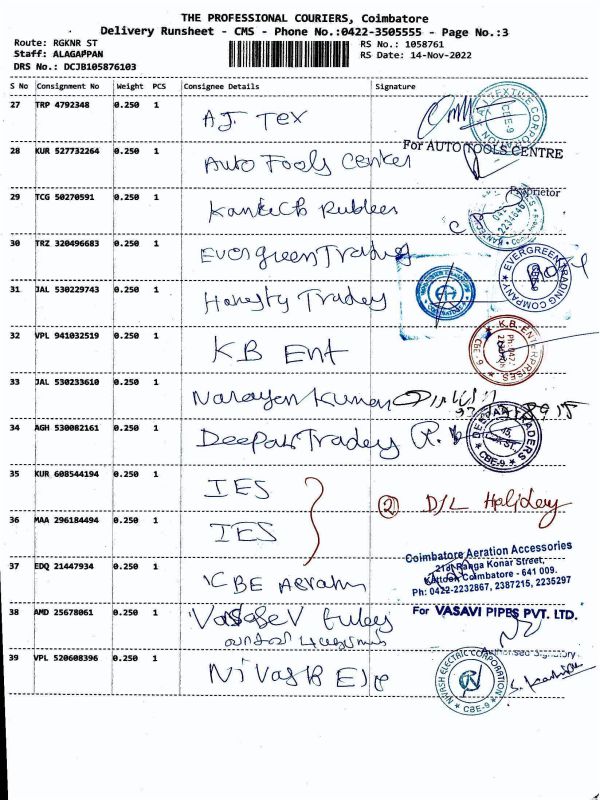 THE PROFESSIONAL COURIERS, Coimbatore
Delivery Runsheet - CMS - Phone No.:0422-3505555 - Page No.:3
Route: RGKNR ST
RS No.: 1058761
Staff: ALAGAPPAN
RS Date: 14-Nov-2022
DRS No.: DCJB105876103
S No Consignment No Weight PCS Consignee Details Signature
27 TRP 4792348 0.250 1 A.J. Tex
28 KUR 527732264 0.250 1 Auto Tools Center
For AUTO TOOLS CENTRE
Proprietor
29 TCG 50270591 0.250 1
30 TRZ 320496683 0.250 1 Evergreen Trading
EVERGREEN TRADING COMPANY
31 JAL 530229743 0.250 1 Honesty Traders
32 VPL 941032519 0.250 1 KB Ent
K.B. ENTERPRISES CBE-6
33 JAL 530233610 0.250 1 Narayan Kumar
34 AGH 530082161 0.250 1 Deepak Traders
DEEPAK TRADERS CBE-9
35 KUR 608544194 0.250 1 IES
2 D/L Holiday
36 MAA 296184494 0.250 1 IES
37 EDQ 21447934 0.250 1 CBE
Coimbatore Aeration Accessories
218, Ranga Konar Street,
Kattoor, Coimbatore - 641 009.
Ph: 0422-2232867, 2387215, 2235297
38 AMD 25678061 0.250 1
For VASAVI PIPES PVT. LTD.
Authorised Signatory
39 VPL 520608396 0.250 1
NIVASH ELECTRIC CORPORATION CBE-9